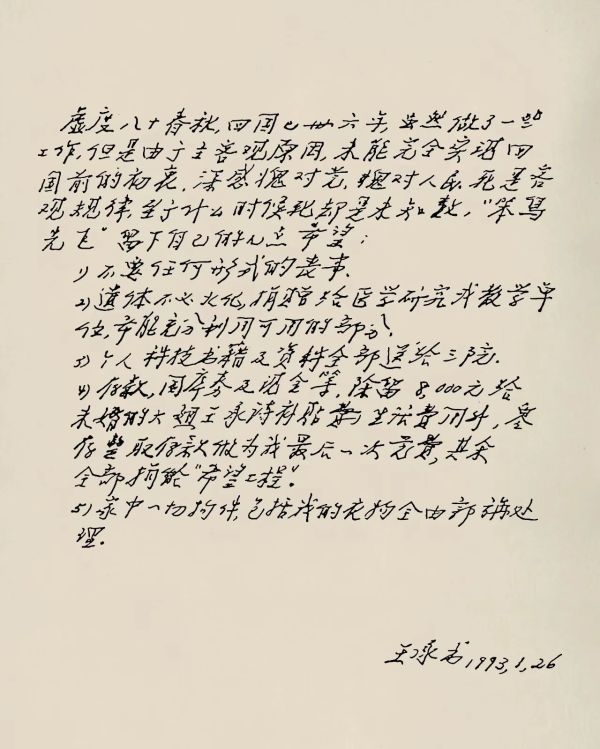 虚度八十春秋,回国已卅六年,虽然做了一些
工作,但是由于主客观原因,未能完全实现回
国前的初衷,深感愧对党,愧对人民.死是客
观规律,至于什么时候死却是未知数,"笨鸟
先飞"留下自己的几点希望:
1)不要任何形式的丧事.
2)遗体不必火化,捐赠给医学研究或教学单
位,希能充分利用可用的部分.
3)个人科技书籍及资料全部送给三院.
4)存款,国库券及现金等,除留8,000元给
未婚的大姐王承诗补贴费生活费用外,
存 取存款做为我最后一次党费,其余
全部捐给"希望工程".
5)家中一切物件,包括我的衣物全由郭 处
理.
王承书1993,1,26